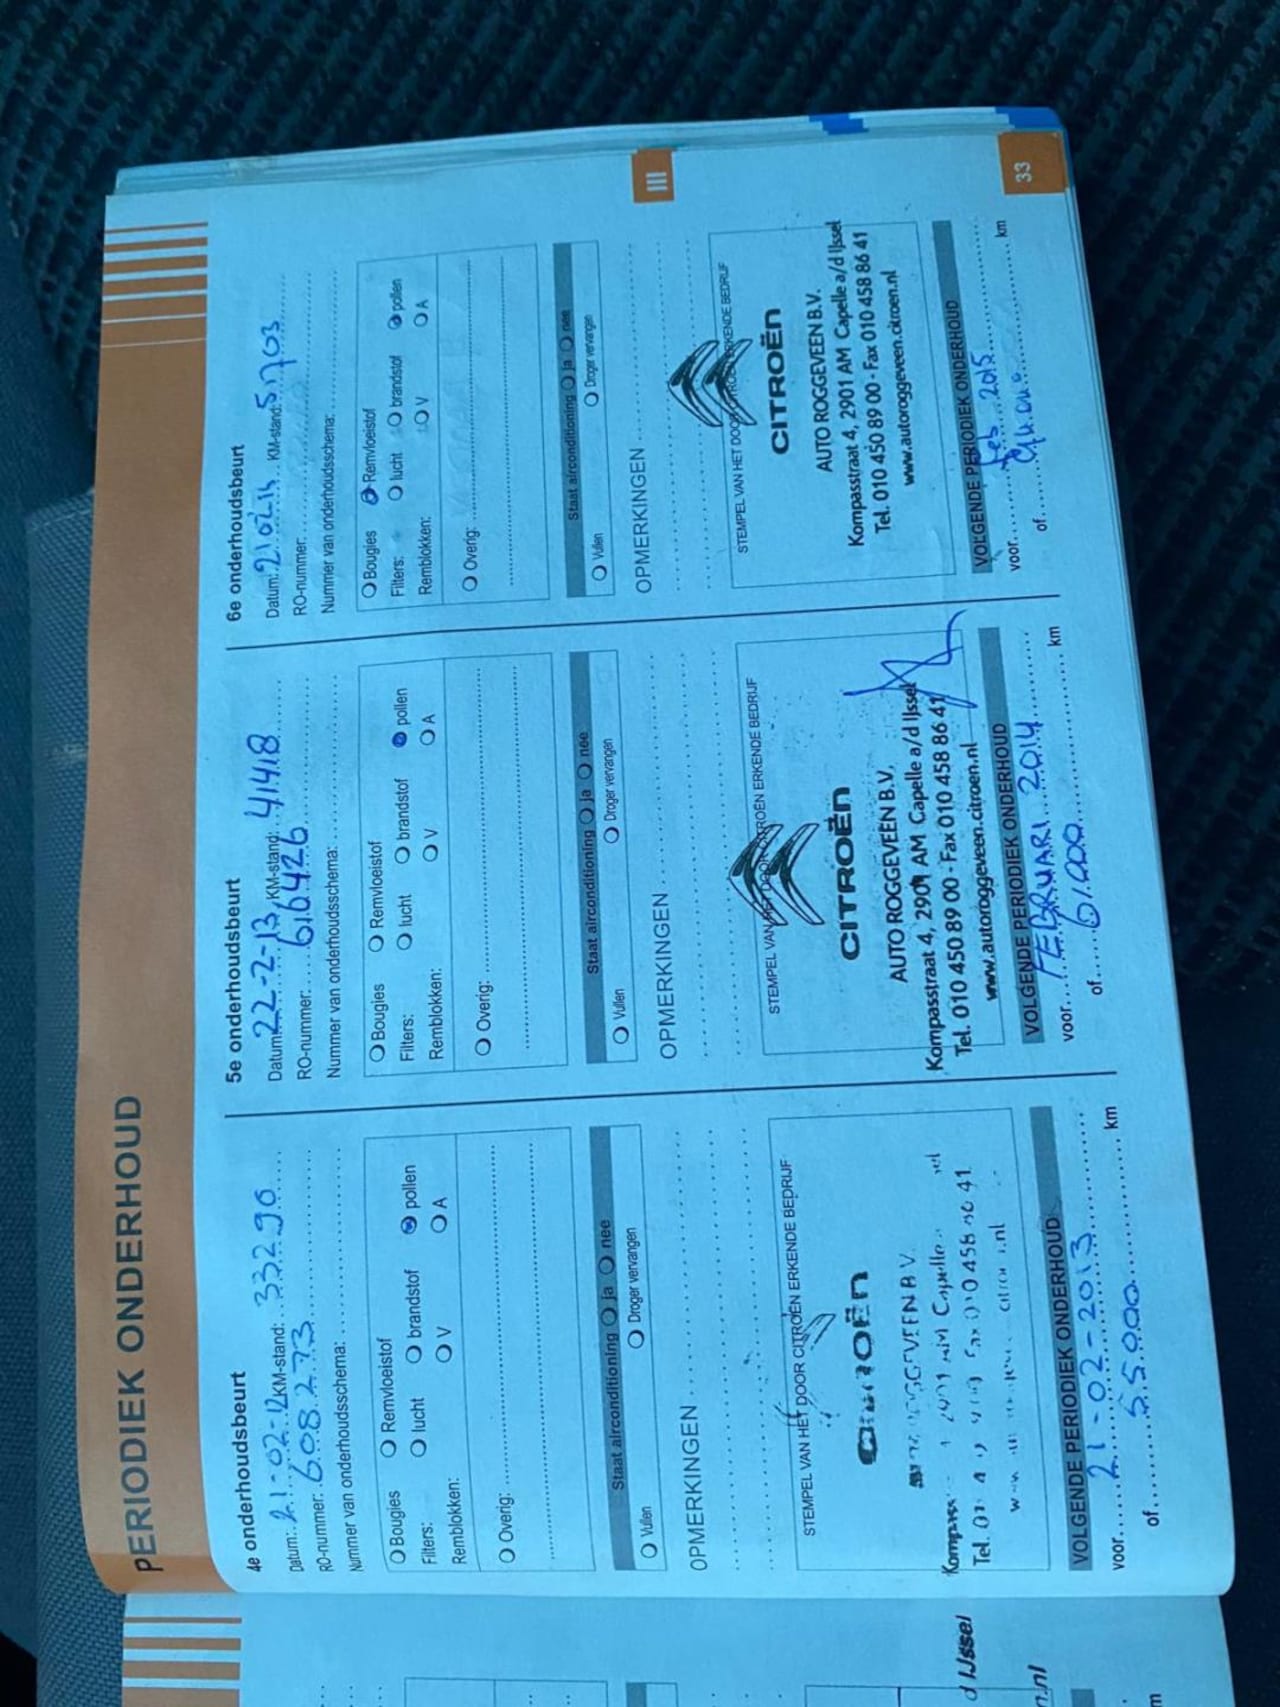 PERIODIEK ONDERHOUD
4e onderhoudsbeurt
Datum: 21-02-12 KM-stand: 33290
RO-nummer: 608273
Nummer van onderhoudsschema:
Bougies Remvloeistof
Filters: lucht brandstof pollen
Remblokken: V A
Overig:
Staat airconditioning ja nee
Vullen Droger vervangen
OPMERKINGEN
STEMPEL VAN HET DOOR CITROËN ERKENDE BEDRIJF
CITROËN
Capelle
458 41
VOLGENDE PERIODIEK ONDERHOUD
voor 21-02-2013
of 55000 km
5e onderhoudsbeurt
Datum: 22-2-13 KM-stand: 41418
RO-nummer: 616426
Nummer van onderhoudsschema:
Bougies Remvloeistof
Filters: lucht brandstof pollen
Remblokken: V A
Overig:
Staat airconditioning ja nee
Vullen Droger vervangen
OPMERKINGEN
STEMPEL VAN HET DOOR CITROËN ERKENDE BEDRIJF
CITROËN
AUTO ROGGEVEEN B.V.
Kompasstraat 4, 2901 AM Capelle a/d IJssel
Tel. 010 450 89 00 - Fax 010 458 86 41
www.autoroggeveen.citroen.nl
VOLGENDE PERIODIEK ONDERHOUD
voor FEBRUARI 2014
of 61.000 km
6e onderhoudsbeurt
Datum: KM-stand: 51703
RO-nummer:
Nummer van onderhoudsschema:
Bougies Remvloeistof
Filters: lucht brandstof pollen
Remblokken: V A
Overig:
Staat airconditioning ja nee
Vullen Droger vervangen
OPMERKINGEN
STEMPEL VAN HET DOOR CITROËN ERKENDE BEDRIJF
CITROËN
AUTO ROGGEVEEN B.V.
Kompasstraat 4, 2901 AM Capelle a/d IJssel
Tel. 010 450 89 00 - Fax 010 458 86 41
www.autoroggeveen.citroen.nl
VOLGENDE PERIODIEK ONDERHOUD
voor feb 2015
of km
III
33
d IJssel
n.nl
m